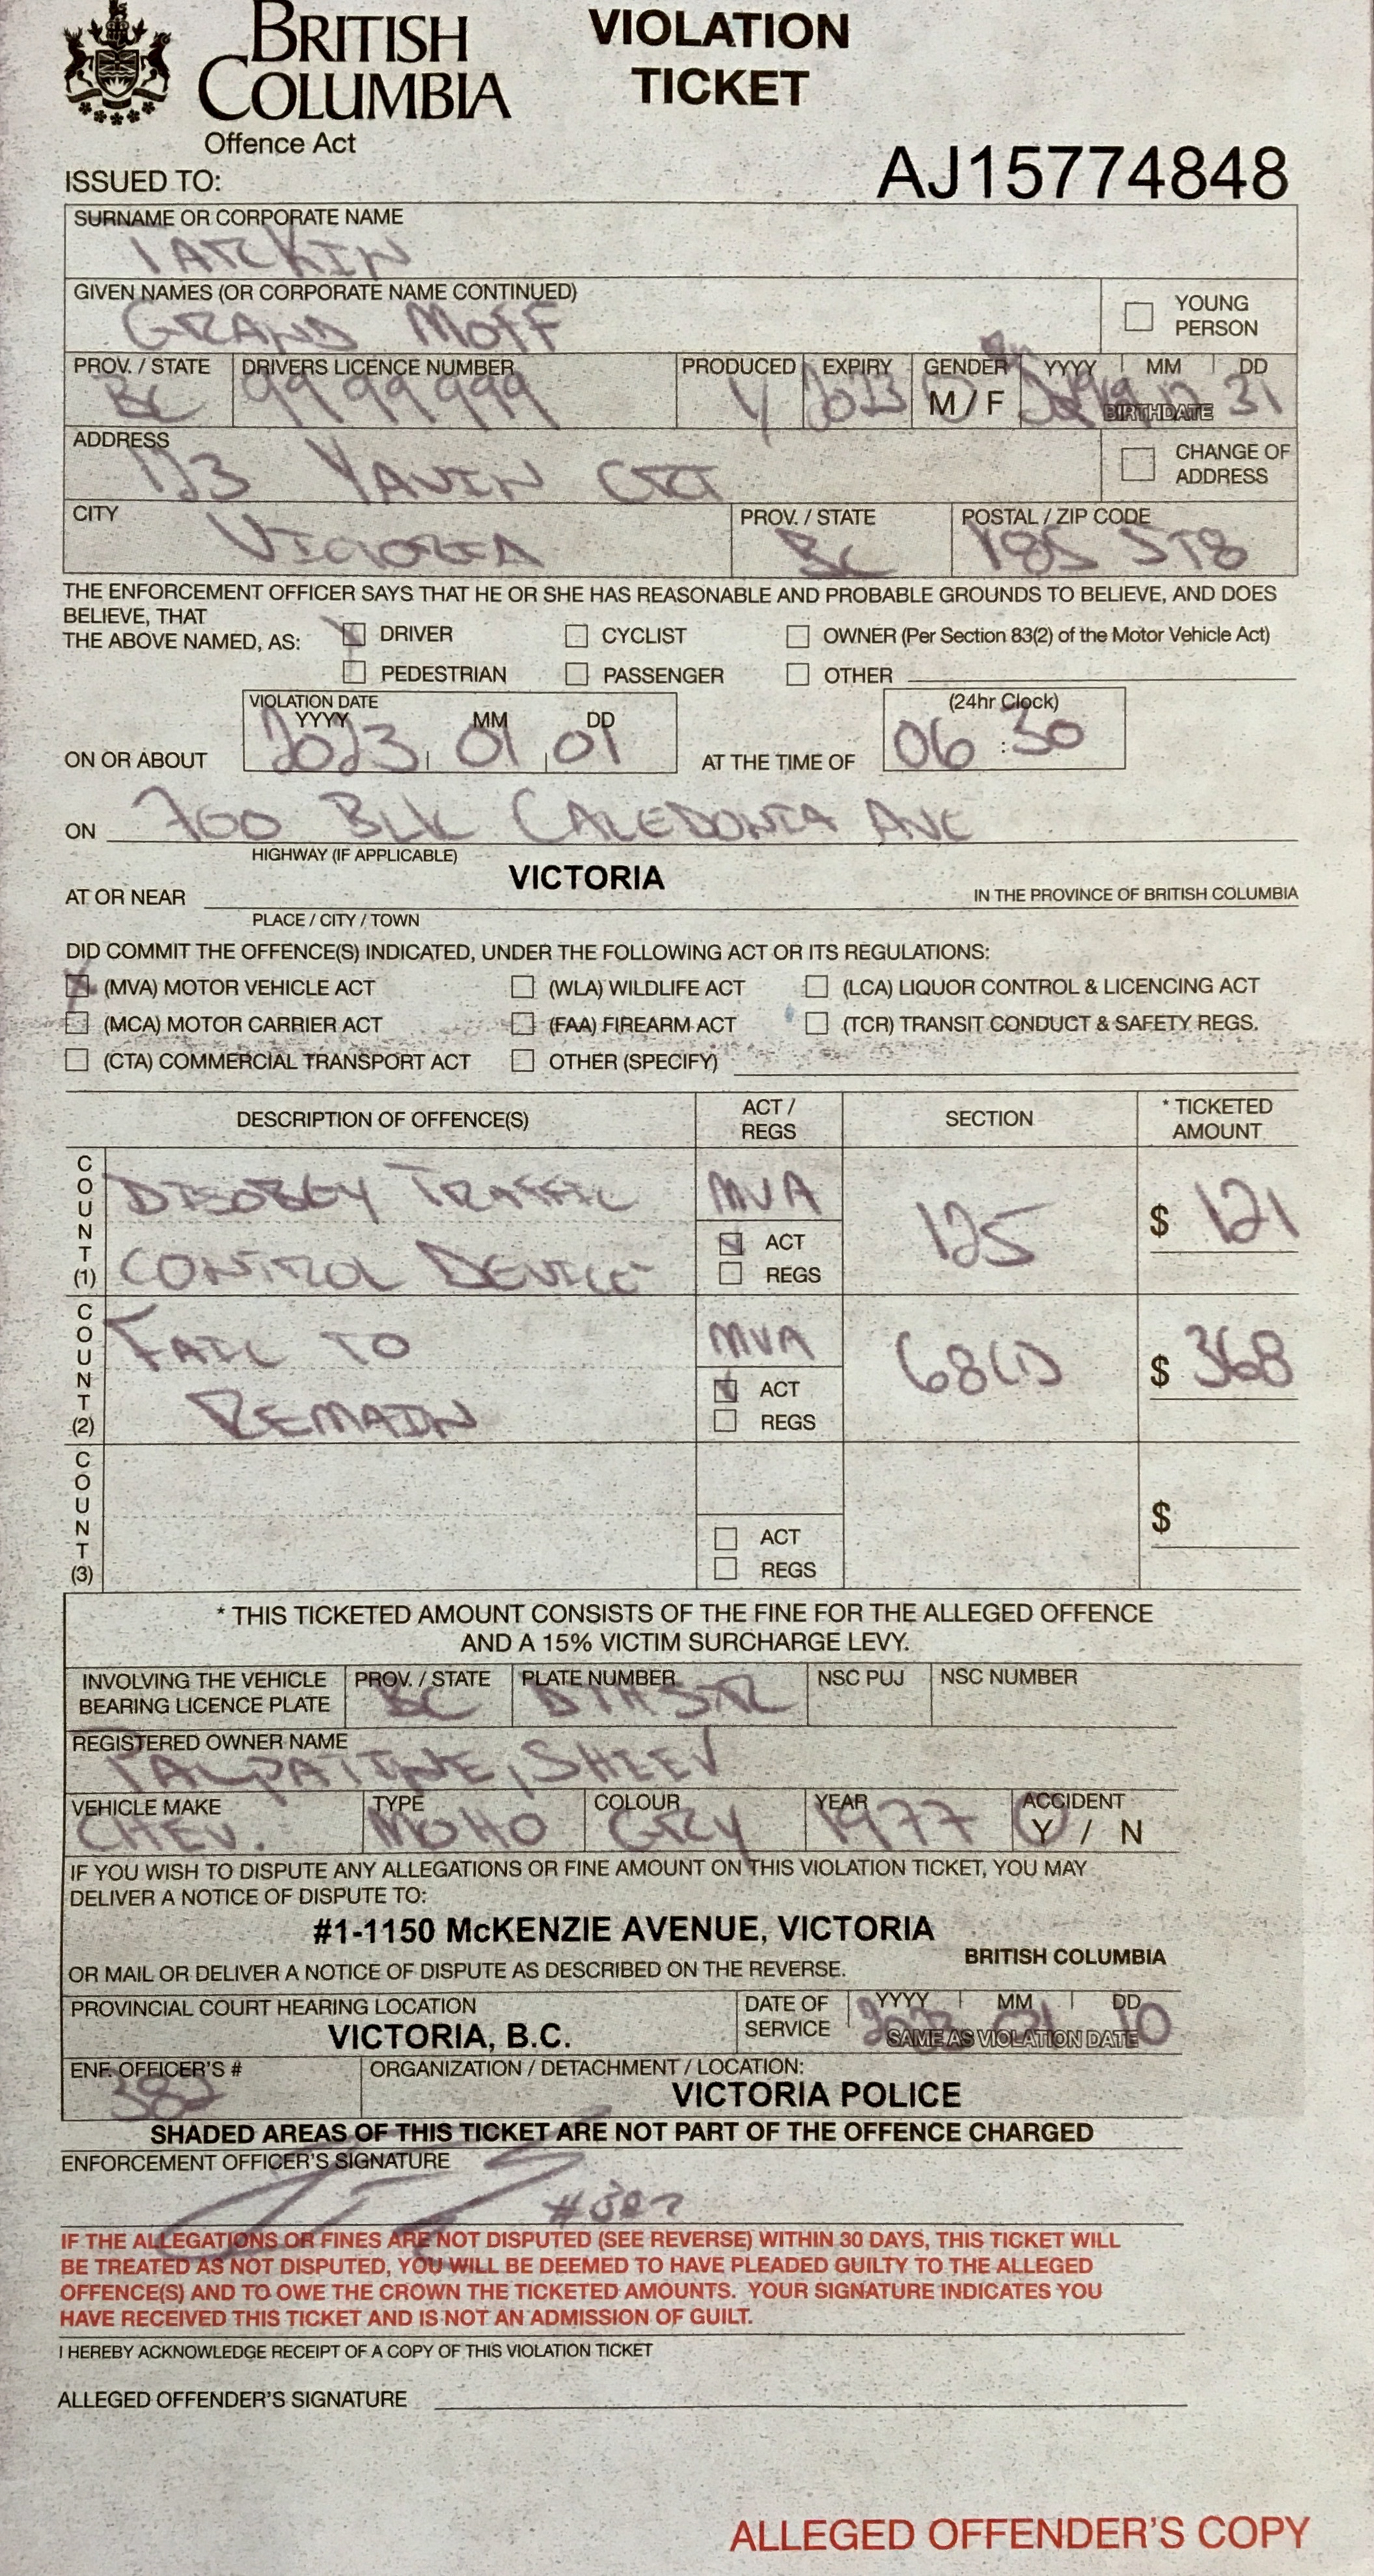 BRITISH COLUMBIA
Offence Act
VIOLATION
TICKET
AJ15774848
ISSUED TO:
SURNAME OR CORPORATE NAME
TARKIN
GIVEN NAMES (OR CORPORATE NAME CONTINUED)
GRAND MOFF
YOUNG PERSON
PROV. / STATE DRIVERS LICENCE NUMBER PRODUCED EXPIRY GENDER YYYY MM DD
BC 99 99 999 Y 2023 M / F BIRTHDATE 31
ADDRESS
123 YAVIN CRT
CHANGE OF ADDRESS
CITY PROV. / STATE POSTAL / ZIP CODE
VICTORIA BC V8S 5T8
THE ENFORCEMENT OFFICER SAYS THAT HE OR SHE HAS REASONABLE AND PROBABLE GROUNDS TO BELIEVE, AND DOES
BELIEVE, THAT
THE ABOVE NAMED, AS: DRIVER CYCLIST OWNER (Per Section 83(2) of the Motor Vehicle Act)
PEDESTRIAN PASSENGER OTHER
VIOLATION DATE (24hr Clock)
YYYY MM DD
ON OR ABOUT 2023 01 01 AT THE TIME OF 06 : 30
ON 700 BLK CALEDONIA AVE
HIGHWAY (IF APPLICABLE)
AT OR NEAR VICTORIA IN THE PROVINCE OF BRITISH COLUMBIA
PLACE / CITY / TOWN
DID COMMIT THE OFFENCE(S) INDICATED, UNDER THE FOLLOWING ACT OR ITS REGULATIONS:
(MVA) MOTOR VEHICLE ACT (WLA) WILDLIFE ACT (LCA) LIQUOR CONTROL & LICENCING ACT
(MCA) MOTOR CARRIER ACT (FAA) FIREARM ACT (TCR) TRANSIT CONDUCT & SAFETY REGS.
(CTA) COMMERCIAL TRANSPORT ACT OTHER (SPECIFY)
DESCRIPTION OF OFFENCE(S) ACT / REGS SECTION * TICKETED AMOUNT
COUNT (1) DISOBEY TRAFFIC MVA 125 $ 121
CONTROL DEVICE ACT REGS
COUNT (2) FAIL TO MVA 68(1) $ 368
REMAIN ACT REGS
COUNT (3) ACT REGS $
* THIS TICKETED AMOUNT CONSISTS OF THE FINE FOR THE ALLEGED OFFENCE
AND A 15% VICTIM SURCHARGE LEVY.
INVOLVING THE VEHICLE BEARING LICENCE PLATE PROV. / STATE PLATE NUMBER NSC PUJ NSC NUMBER
BC DTHSTR
REGISTERED OWNER NAME
PALPATINE, SHEEV
VEHICLE MAKE TYPE COLOUR YEAR ACCIDENT
CHEV. MOHO GRY 1977 Y / N
IF YOU WISH TO DISPUTE ANY ALLEGATIONS OR FINE AMOUNT ON THIS VIOLATION TICKET, YOU MAY
DELIVER A NOTICE OF DISPUTE TO:
#1-1150 McKENZIE AVENUE, VICTORIA
BRITISH COLUMBIA
OR MAIL OR DELIVER A NOTICE OF DISPUTE AS DESCRIBED ON THE REVERSE.
PROVINCIAL COURT HEARING LOCATION DATE OF SERVICE YYYY MM DD
VICTORIA, B.C. 2023 01 10 SAME AS VIOLATION DATE
ENF. OFFICER'S # ORGANIZATION / DETACHMENT / LOCATION:
382 VICTORIA POLICE
SHADED AREAS OF THIS TICKET ARE NOT PART OF THE OFFENCE CHARGED
ENFORCEMENT OFFICER'S SIGNATURE
#382
IF THE ALLEGATIONS OR FINES ARE NOT DISPUTED (SEE REVERSE) WITHIN 30 DAYS, THIS TICKET WILL
BE TREATED AS NOT DISPUTED, YOU WILL BE DEEMED TO HAVE PLEADED GUILTY TO THE ALLEGED
OFFENCE(S) AND TO OWE THE CROWN THE TICKETED AMOUNTS. YOUR SIGNATURE INDICATES YOU
HAVE RECEIVED THIS TICKET AND IS NOT AN ADMISSION OF GUILT.
I HEREBY ACKNOWLEDGE RECEIPT OF A COPY OF THIS VIOLATION TICKET
ALLEGED OFFENDER'S SIGNATURE
ALLEGED OFFENDER'S COPY